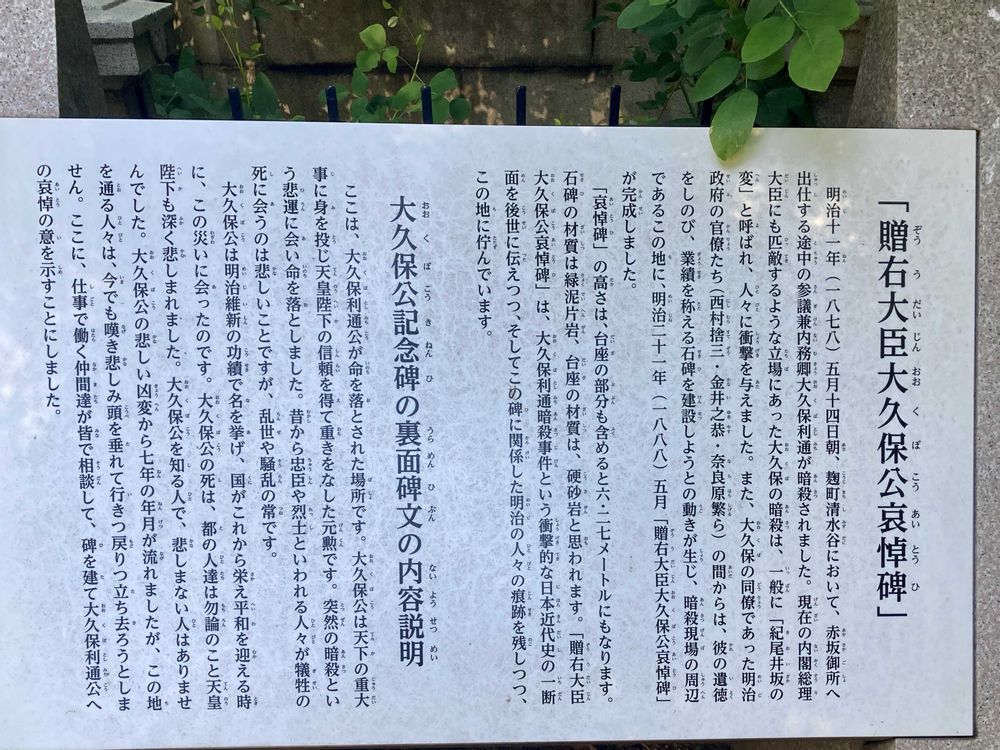 「贈右大臣大久保公哀悼碑」
明治十一年（一八七八）五月十四日朝、麹町清水谷において、赤坂御所へ
出仕する途中の参議兼内務卿大久保利通が暗殺されました。現在の内閣総理
大臣にも匹敵するような立場にあった大久保の暗殺は、一般に「紀尾井坂の
変」と呼ばれ、人々に衝撃を与えました。また、大久保の同僚であった明治
政府の官僚たち（西村捨三・金井之恭・奈良原繁ら）の間からは、彼の遺徳
をしのび、業績を称える石碑を建設しようとの動きが生じ、暗殺現場の周辺
であるこの地に、明治二十一年（一八八八）五月「贈右大臣大久保公哀悼碑」
が完成しました。
「哀悼碑」の高さは、台座の部分も含めると六・二七メートルにもなります。
石碑の材質は緑泥片岩、台座の材質は、硬砂岩と思われます。「贈右大臣
大久保公哀悼碑」は、大久保利通暗殺事件という衝撃的な日本近代史の一断
面を後世に伝えつつ、そしてこの碑に関係した明治の人々の痕跡を残しつつ、
この地に佇んでいます。
大久保公記念碑の裏面碑文の内容説明
ここは、大久保利通公が命を落とされた場所です。大久保公は天下の重大
事に身を投じ天皇陛下の信頼を得て重きをなした元勲です。突然の暗殺とい
う悲運に会い命を落としました。昔から忠臣や烈士といわれる人々が犠牲の
死に会うのは悲しいことですが、乱世や騒乱の常です。
大久保公は明治維新の功績で名を挙げ、国がこれから栄え平和を迎える時
に、この災いに会ったのです。大久保公の死は、都の人達は勿論のこと天皇
陛下も深く悲しまれました。大久保公を知る人で、悲しまない人はありませ
んでした。大久保公の悲しい凶変から七年の年月が流れましたが、この地
を通る人々は、今でも嘆き悲しみ頭を垂れて行きつ戻りつ立ち去ろうとしま
せん。ここに、仕事で働く仲間達が皆で相談して、碑を建て大久保利通公へ
の哀悼の意を示すことにしました。